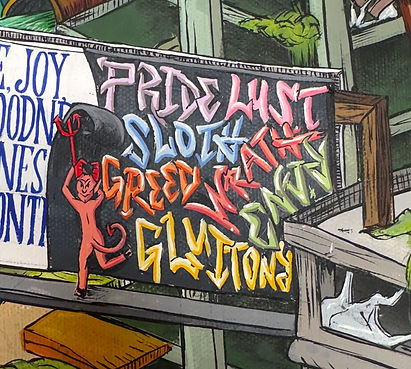 E, JOY
OODN
NES
ONT
PRIDE LUST
SLOTH
GREED WRATH
ENVY
GLUTTONY